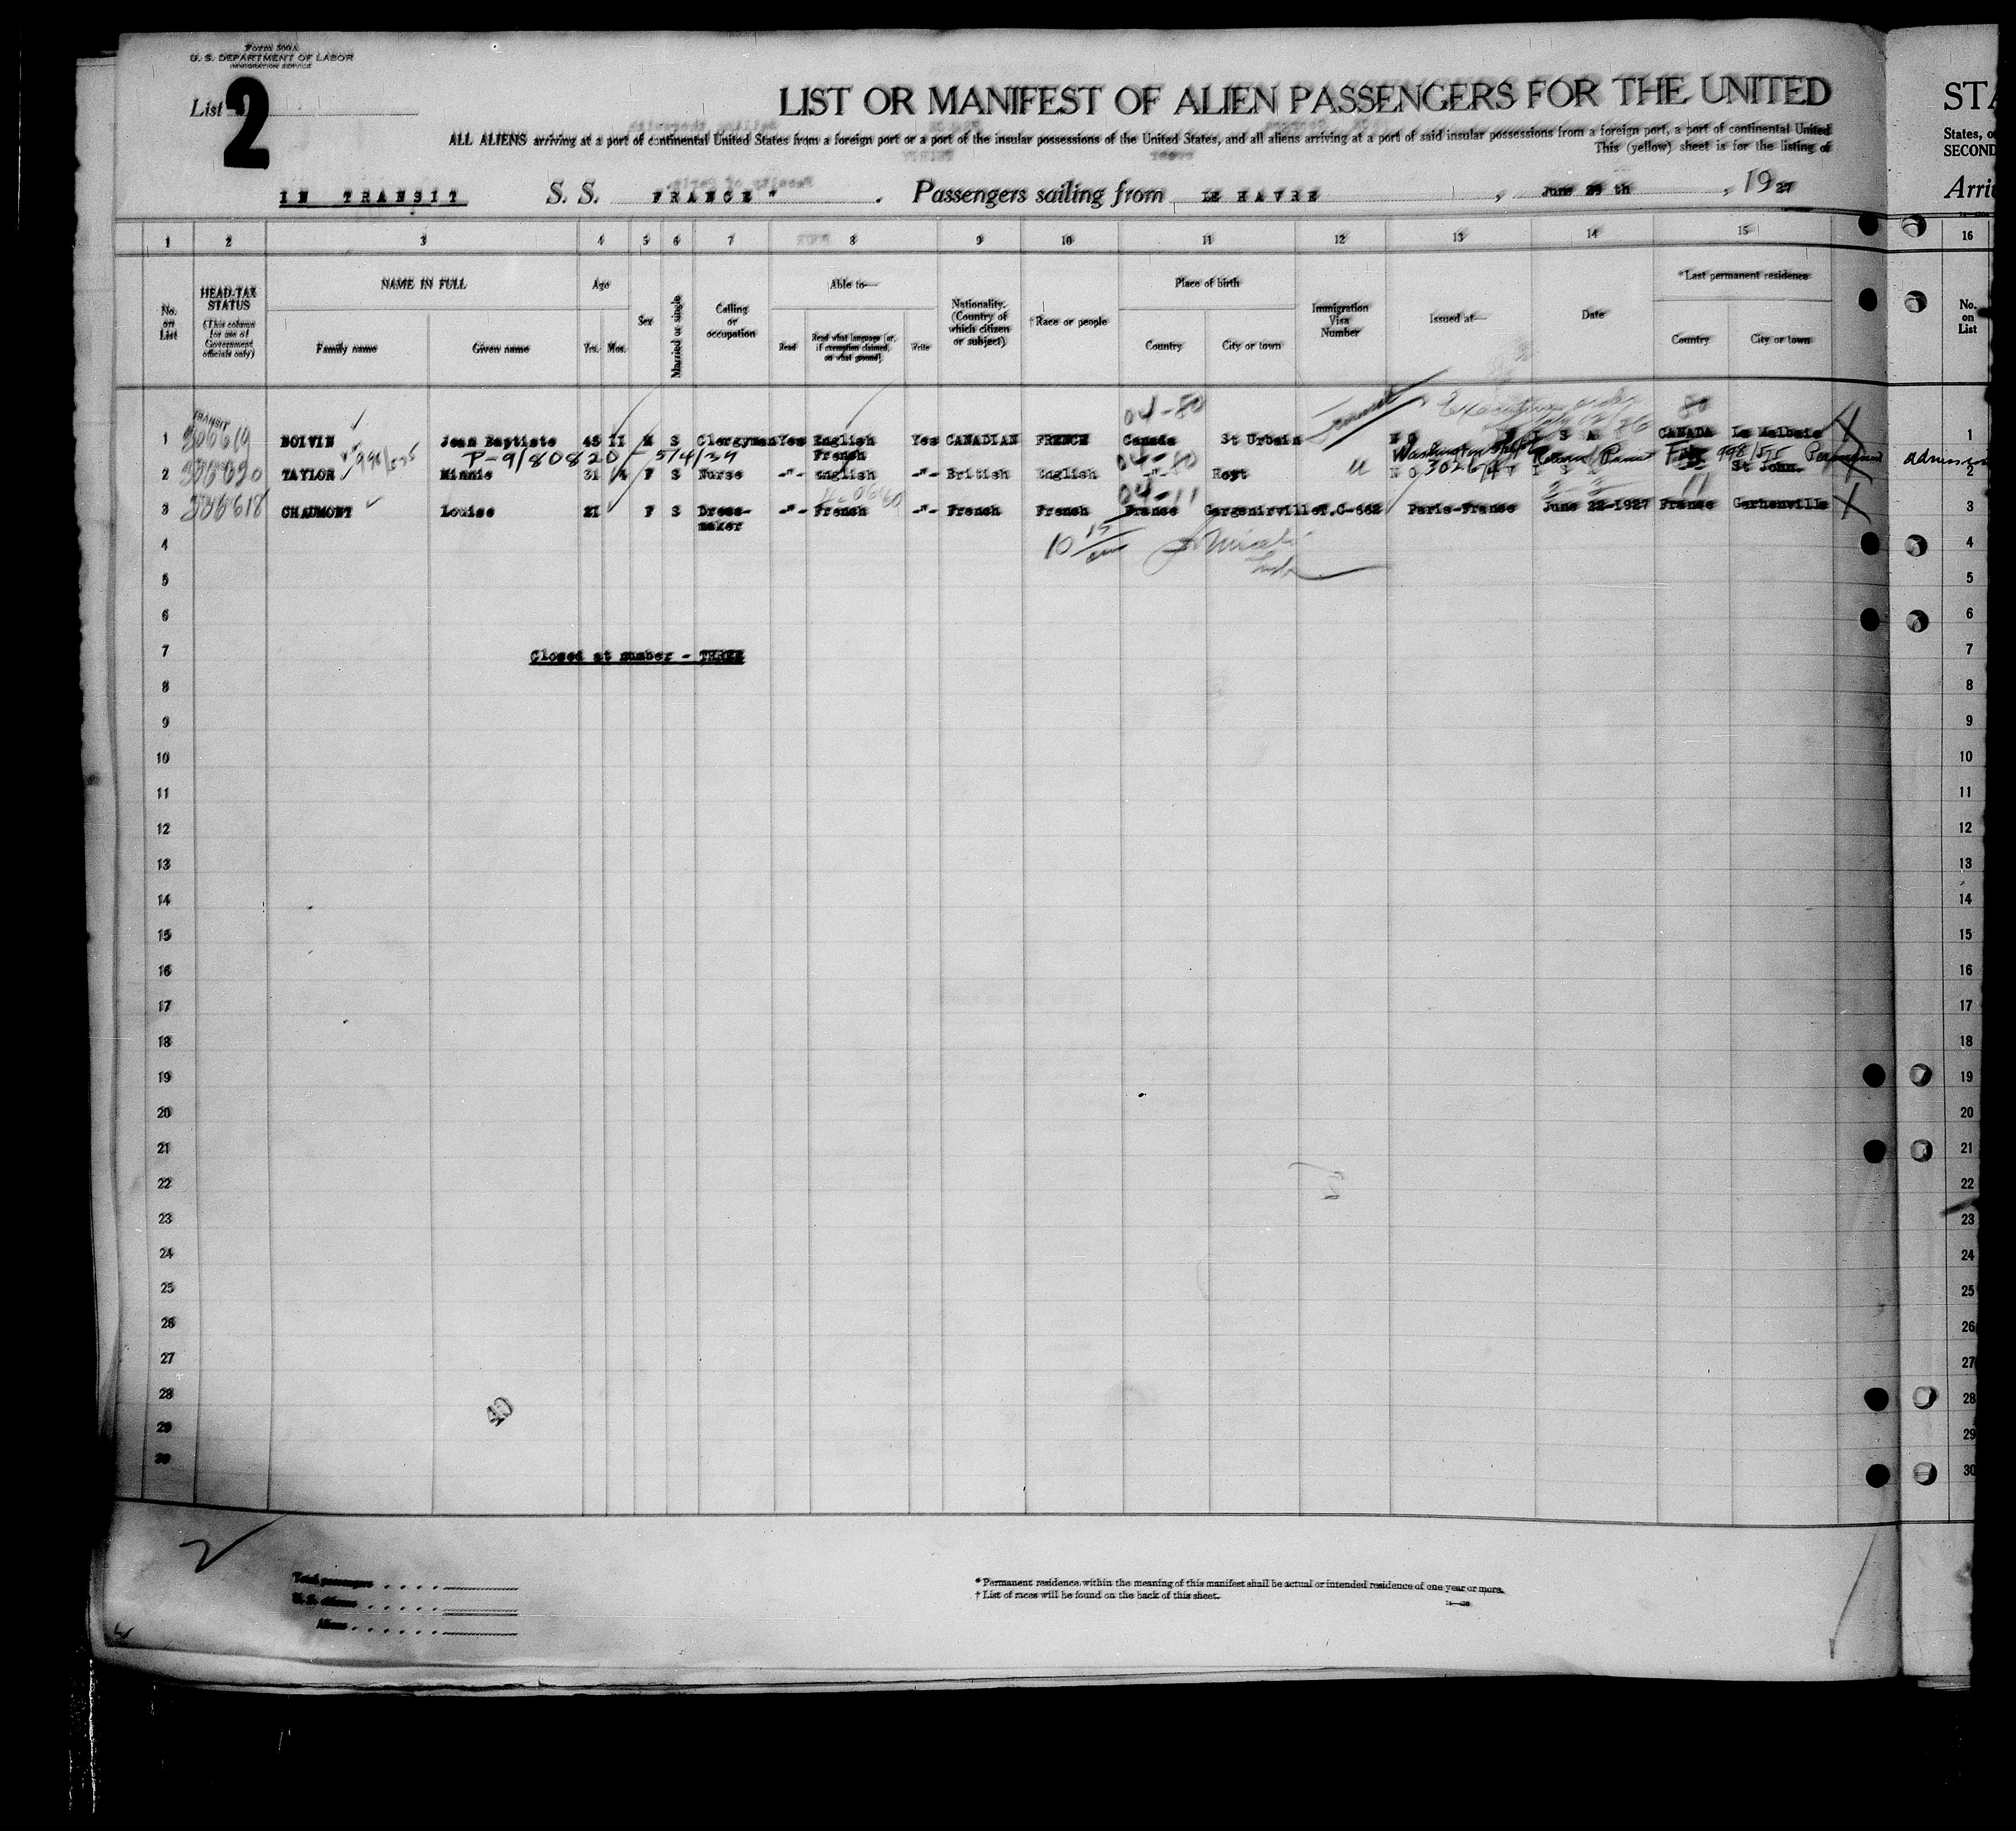 Form 500A
U. S. DEPARTMENT OF LABOR
IMMIGRATION SERVICE
List 2
LIST OR MANIFEST OF ALIEN PASSENGERS FOR THE UNITED
STA
ALL ALIENS arriving at a port of continental United States from a foreign port or a port of the insular possessions of the United States, and all aliens arriving at a port of said insular possessions from a foreign port, a port of continental United
States, o
This (yellow) sheet is for the listing of
SECOND
IN TRANSIT S. S. FRANCE" . Passengers sailing from LE HAVRE , June 29 th , 1927
Arri
1 2 3 4 5 6 7 8 9 10 11 12 13 14 15 16
No. on List
HEAD-TAX STATUS
(This column for use of Government officials only)
NAME IN FULL
Family name Given name
Age
Yrs. Mos.
Sex
Married or single
Calling or occupation
Able to—
Read Read what language [or, if exemption claimed, on what ground] Write
Nationality. (Country of which citizen or subject)
†Race or people
Place of birth
Country City or town
Immigration Visa Number
Issued at—
Date
*Last permanent residence
Country City or town
No. on List
TRANSIT 04-80 Transit Executive order 80
1 BOIVIN Jean Baptiste 48 11 M S Clergyman Yes English French Yes CANADIAN FRENCH Canada St Urbain CANADA La Malbaie 1
998/575 P-9/80820 - 5/4/39 04-80 Washington Return Permit 998/575 admission
2 TAYLOR Minnie 31 F S Nurse -"- English -"- British English -"- Hoyt 302674 St John. 2
04-11 11
3 336618 CHAUMONT Louise 21 F S Dress-maker -"- French -"- French French France Gargenville T.C-662 Paris-France June 22-1927 France Garhenville X 3
4 10 15/am 4
5 5
6 6
7 Closed at number - THREE 7
8 8
9 9
10 10
11 11
12 12
13 13
14 14
15 15
16 16
17 17
18 18
19 19
20 20
21 21
22 22
23 23
24 24
25 25
26 26
27 27
28 40 28
29 29
30 30
2
Total passengers
U. S. citizens
Aliens
* Permanent residence within the meaning of this manifest shall be actual or intended residence of one year or more.
† List of races will be found on the back of this sheet.